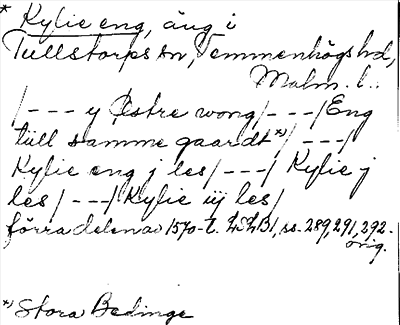 * Kylie eng, äng i
Tullstorps sn, Vemmenhögs hd,
Malm. l..
/--- y Østre wong/---/Eng
till samme gaardt*)/---/
Kylie eng j les/---/ Kylie j
les/---/Kylie iij les/
förra delen av 1570-t. LSLB1, ss. 289, 291, 292.
orig.
*) Stora Bedinge